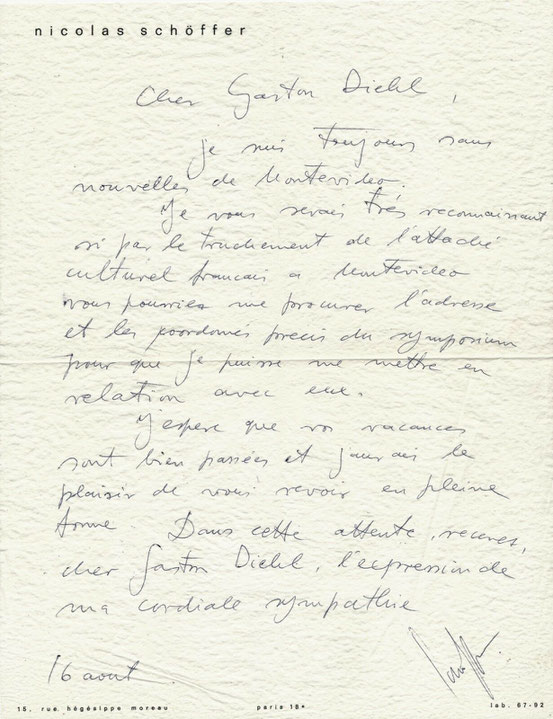 nicolas schöffer
Cher Gaston Diehl,
Je suis toujours sans
nouvelles de Montevideo.
Je vous serais très reconnaissant
si par le truchement de l'attaché
culturel francais a Montevideo
vous pourriez me procurer l'adresse
et les coordonés precis du symposium
pour que je puisse me mettre en
relation avec eux.
J'espere que vos vacances
sont bien passées et j'aurais le
plaisir de vous revoir en pleine
forme Dans cette attente, recevez,
cher Gaston Diehl, l'expression de
ma cordiale sympathie
16 aout
15, rue hégésippe moreau paris 18e lab. 67-92